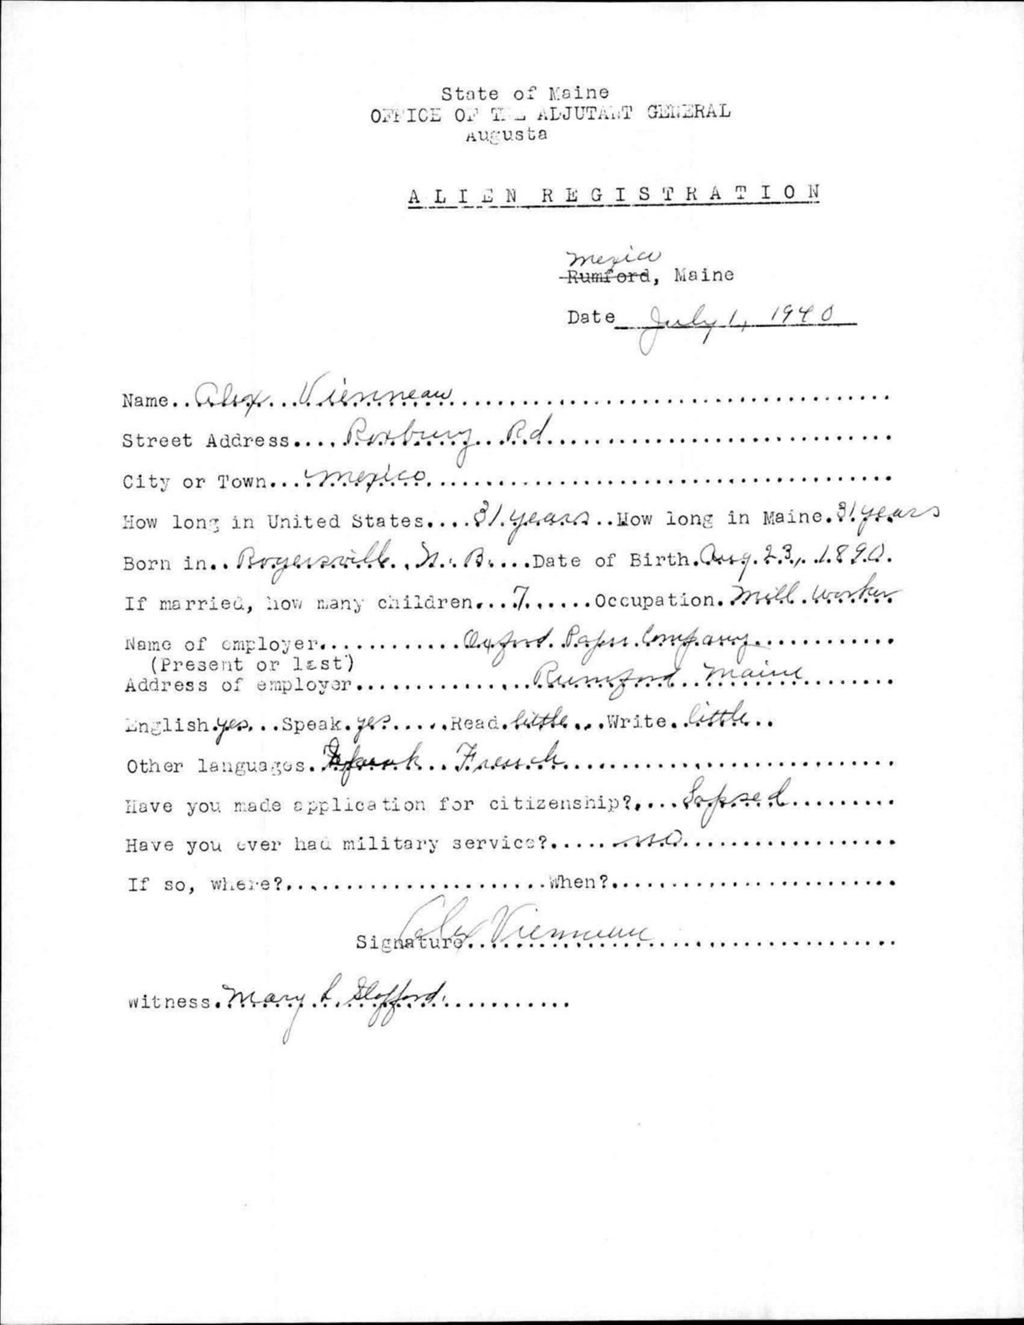 State of Maine
OFFICE OF THE ADJUTANT GENERAL
Augusta
ALIEN REGISTRATION
Mexico
Rumford, Maine
Date July 1, 1940
Name..Alex...Vienneau
Street Address....Roxbury..Rd
City or Town....Mexico
How long in United States....31 years..How long in Maine.31 years
Born in..Rogersville., N.B....Date of Birth.Aug. 23, 1890.
If married, how many children...7......Occupation.Mill worker
Name of employer............Oxford Paper Company
(Present or last)
Address of employer..............Rumford..Maine
English.yes...Speak.yes.....Read.little...Write.little..
Other languages...French
Have you made application for citizenship?....Lapsed
Have you ever had military service?.....no
If so, where?........................When?
Signature.Alex Vienneau
witness.Mary L.